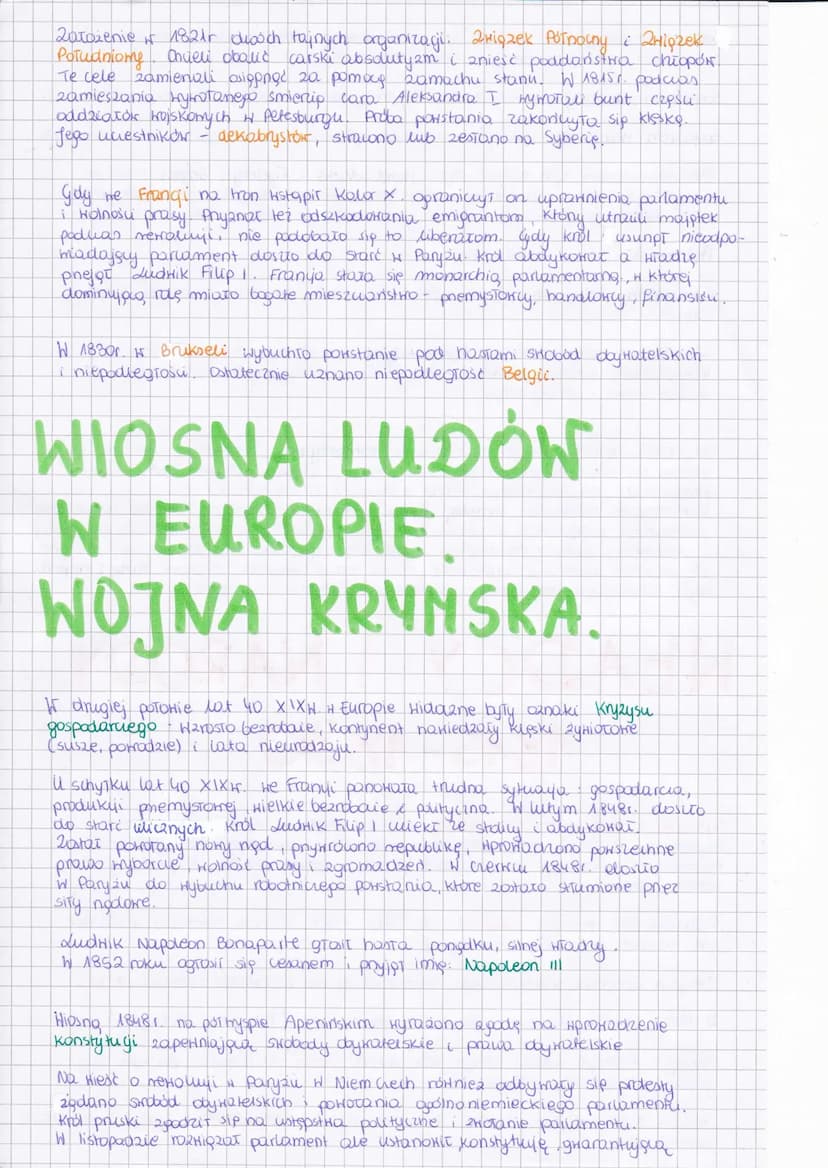 Założenie w 1821r dwóch tajnych organizacji: Związek Północny i Związek
Południowy. Chcieli obalić carski absolutyzm i znieść poddaństwa chłopów.
Te cele zamierzali osiągnąć za pomocą zamachu stanu. W 1815r. podczas
zamieszania wywołanego śmiercią cara Aleksandra I wywołali bunt części
oddziałów wojskowych w Petesburgu. Próba powstania zakończyła się klęską.
Jego uczestników - dekabrystów, stracono lub zesłano na Syberię.
Gdy we Francji na tron wstąpił Karol X. ograniczył on uprawnienia parlamentu
i wolności prasy. Przyznał też odszkodowania emigrantom, którzy utracili majątek
podczas rewolucji, nie podobało się to liberałom. Gdy król usunął nieodpo-
wiadający parlament doszło do starć w Paryżu. Król abdykował a władzę
przejął Ludwik Filip I. Francja stała się monarchią parlamentarną, w której
dominującą rolę miało bogate mieszczaństwo - przemysłowcy, handlowcy, finansiści.
W 1830r. w Brukseli wybuchło powstanie pod hasłami swobód obywatelskich
i niepodległości. Ostatecznie uznano niepodległość Belgii.
WIOSNA LUDÓW
W EUROPIE.
WOJNA KRYMSKA.
W drugiej połowie lat 40 XIXw. w Europie widoczne były oznaki Kryzysu
gospodarczego: wzrosło bezrobocie, kontynent nawiedzały klęski żywiołowe
(susze, powodzie) i lata nieurodzaju.
U schyłku lat 40 XIXw. we Francji panowała trudna sytuacja: gospodarcza,
produkcji przemysłowej, wielkie bezrobocie i polityczna. W lutym 1848r. doszło
do starć ulicznych. Król Ludwik Filip I uciekł ze stolicy i abdykował.
Został powołany nowy rząd, przywrócono republikę, wprowadzono powszechne
prawo wyborcze, wolność prasy i zgromadzeń. W czerwcu 1848r. doszło
w Paryżu do wybuchu robotniczego powstania, które zostało stłumione przez
siły rządowe.
Ludwik Napoleon Bonaparte głosił hasła porządku, silnej władzy.
W 1852 roku ogłosił się cesarzem i przyjął imię: Napoleon III
Wiosną 1848r. na półwyspie Apenińskim wyrażono zgodę na wprowadzenie
Konstytucji zapewniającą swobody obywatelskie i prawa obywatelskie
Na wieść o rewolucji w Paryżu w Niemczech również odbywały się protesty
żądano swobód obywatelskich i powołania ogólnoniemieckiego parlamentu.
Król pruski zgodził się na ustępstwa polityczne i zwołanie parlamentu.
W listopadzie rozwiązał parlament ale ustanowił konstytucję, gwarantującą